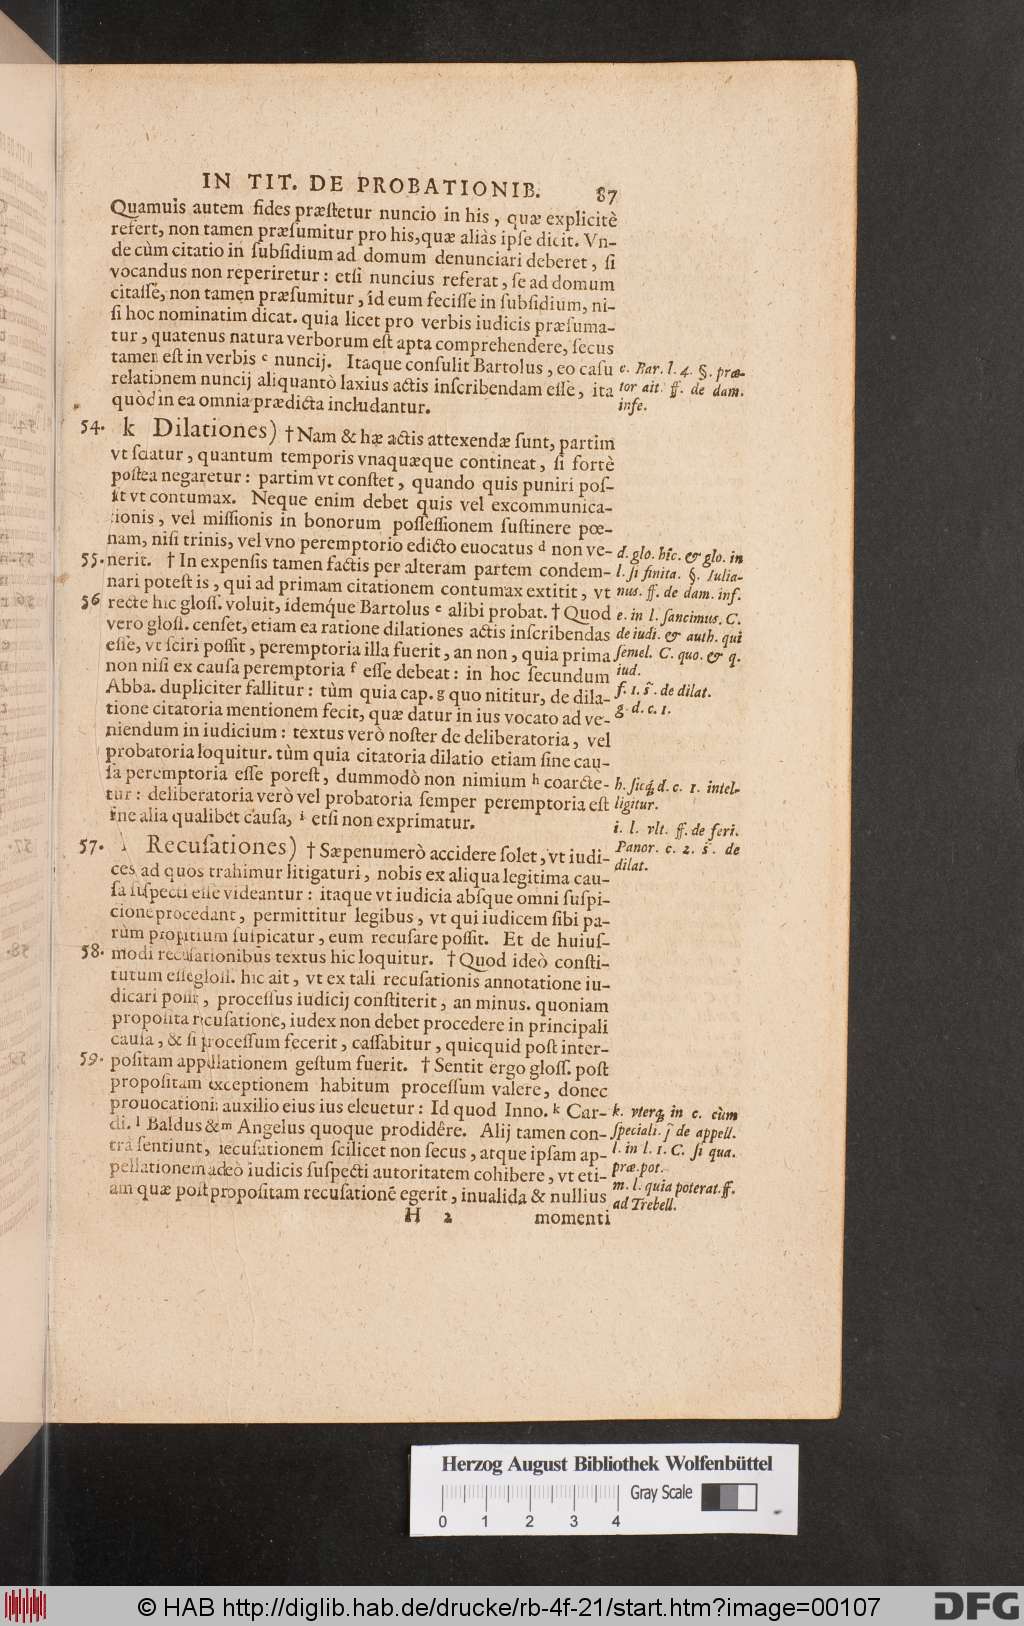 IN TIT. DE PROBATIONIB. 87
Quamuis autem fides præſtetur nuncio in his, quæ explicitè
refert, non tamen præſumitur pro his, quæ aliàs ipſe dicit. Vn-
de cùm citatio in ſubſidium ad domum denunciari deberet, ſi
vocandus non reperiretur: etſi nuncius referat, ſe ad domum
citaſſe, non tamen præſumitur, id eum feciſſe in ſubſidium, ni-
ſi hoc nominatim dicat. quia licet pro verbis iudicis præſuma-
tur, quatenus natura verborum eſt apta comprehendere, ſecus
tamen eſt in verbis c nuncij. Itaque conſulit Bartolus, eo caſu
relationem nuncij aliquantò laxius actis inſcribendam eſſe, ita
quòd in ea omnia prædicta includantur.
c. Bar. l. 4. §. præ-
tor ait. ff. de dam.
infe.
54. k Dilationes) † Nam & hæ actis attexendæ ſunt, partim
vt ſciatur, quantum temporis vnaquæque contineat, ſi fortè
poſtea negaretur: partim vt conſtet, quando quis puniri poſ-
ſit vt contumax. Neque enim debet quis vel excommunica-
tionis, vel miſſionis in bonorum poſſeſſionem ſuſtinere pœ-
nam, niſi trinis, vel vno peremptorio edicto euocatus d non ve-
55. nerit. † In expenſis tamen factis per alteram partem condem-
nari poteſt is, qui ad primam citationem contumax extitit, vt
56 recte hic gloſſ. voluit, idemq́ue Bartolus e alibi probat. † Quod
vero gloſſ. cenſet, etiam ea ratione dilationes actis inſcribendas
eſſe, vt ſciri poſſit, peremptoria illa fuerit, an non, quia prima
non niſi ex cauſa peremptoria f eſſe debeat: in hoc ſecundum
Abba. dupliciter fallitur: tùm quia cap. g quo nititur, de dila-
tione citatoria mentionem fecit, quæ datur in ius vocato ad ve-
niendum in iudicium: textus verò noſter de deliberatoria, vel
probatoria loquitur. tùm quia citatoria dilatio etiam ſine cau-
ſa peremptoria eſſe poteſt, dummodò non nimium h coarctè-
tur: deliberatoria verò vel probatoria ſemper peremptoria eſt
ſine alia qualibet cauſa, i etſi non exprimatur.
d. glo. hîc. & glo. in
l. ſi finita. §. Iulia-
nus. ff. de dam. inf.
e. in l. ſancimus. C.
de iudi. & auth. qui
ſemel. C. quo. & q.
iud.
f. 1. s̃. de dilat.
g. d. c. 1.
h. ſicq́; d. c. 1. intel-
ligitur.
i. l. vlt. ff. de feri.
Panor. c. 2. s̃. de
dilat.
57. l Recuſationes) † Sæpenumerò accidere ſolet, vt iudi-
ces ad quos trahimur litigaturi, nobis ex aliqua legitima cau-
ſa ſuſpecti eſſe videantur: itaque vt iudicia abſque omni ſuſpi-
cione procedant, permittitur legibus, vt qui iudicem ſibi pa-
rùm propitium ſuſpicatur, eum recuſare poſſit. Et de huiuſ-
58. modi recuſationibus textus hic loquitur. † Quod ideò conſti-
tutum eſſe gloſſ. hic ait, vt ex tali recuſationis annotatione iu-
dicari poſſit, proceſſus iudicij conſtiterit, an minus. quoniam
propoſita recuſatione, iudex non debet procedere in principali
cauſa, & ſi proceſſum fecerit, caſſabitur, quicquid poſt inter-
59. poſitam appellationem geſtum fuerit. † Sentit ergo gloſſ. poſt
propoſitam exceptionem habitum proceſſum valere, donec
prouocationis auxilio eius ius eleuetur: Id quod Inno. k Car-
di. l Baldus & m Angelus quoque prodidêre. Alij tamen con-
trà ſentiunt, recuſationem ſcilicet non ſecus, atque ipſam ap-
pellationem adeò iudicis ſuſpecti autoritatem cohibere, vt eti-
am quæ poſt propoſitam recuſationẽ egerit, inualida & nullius
k. vterq́; in c. cùm
ſpeciali. ſ̃ de appell.
l. in l. 1. C. ſi qua.
præ. pot.
m. l. quia poterat. ff.
ad Trebell.
H 2 momenti
Herzog August Bibliothek Wolfenbüttel
Gray Scale
0 1 2 3 4
© HAB http://diglib.hab.de/drucke/rb-4f-21/start.htm?image=00107
DFG